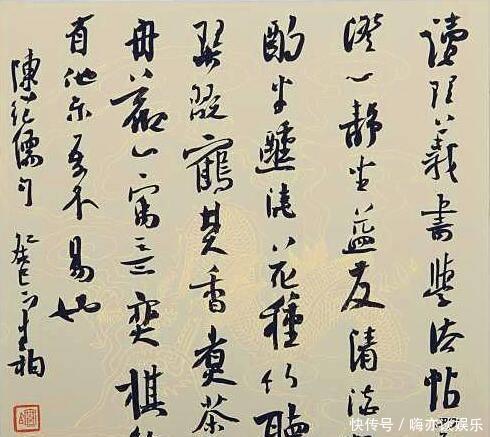 讀理義書學法帖
澄心靜坐益友清談
酌半醺澆花種竹聽
琴玩鶴焚香煮茶
舟觀山寓意弈棋
有他樂吾不易也
陳繼儒句
快传号/嗨亦谈娱乐